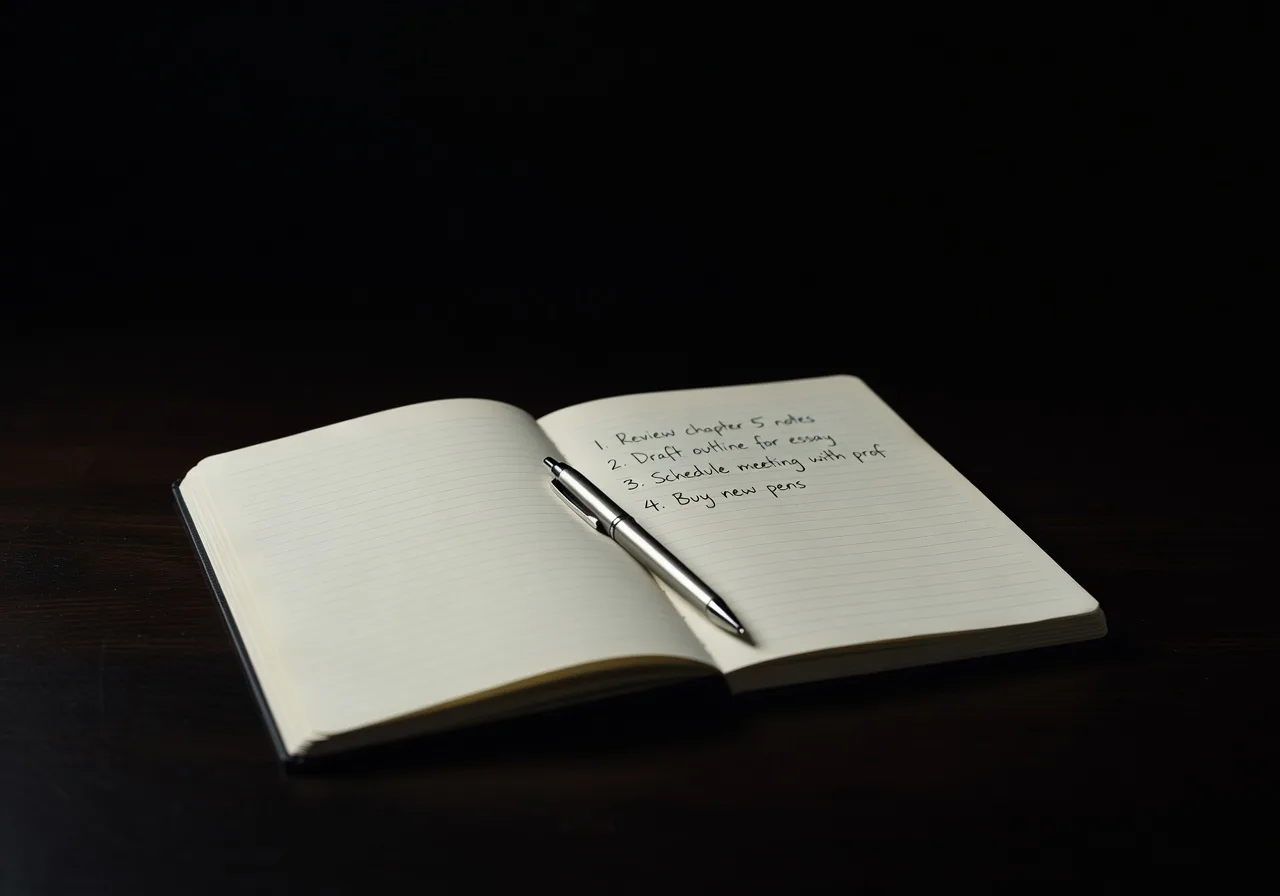 1. Review chapter 5 notes
2. Draft outline for essay
3. Schedule meeting with prof
4. Buy new pens